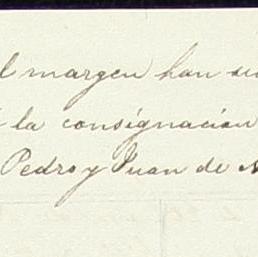 l margen han si
la consignación
Pedro y Juan de